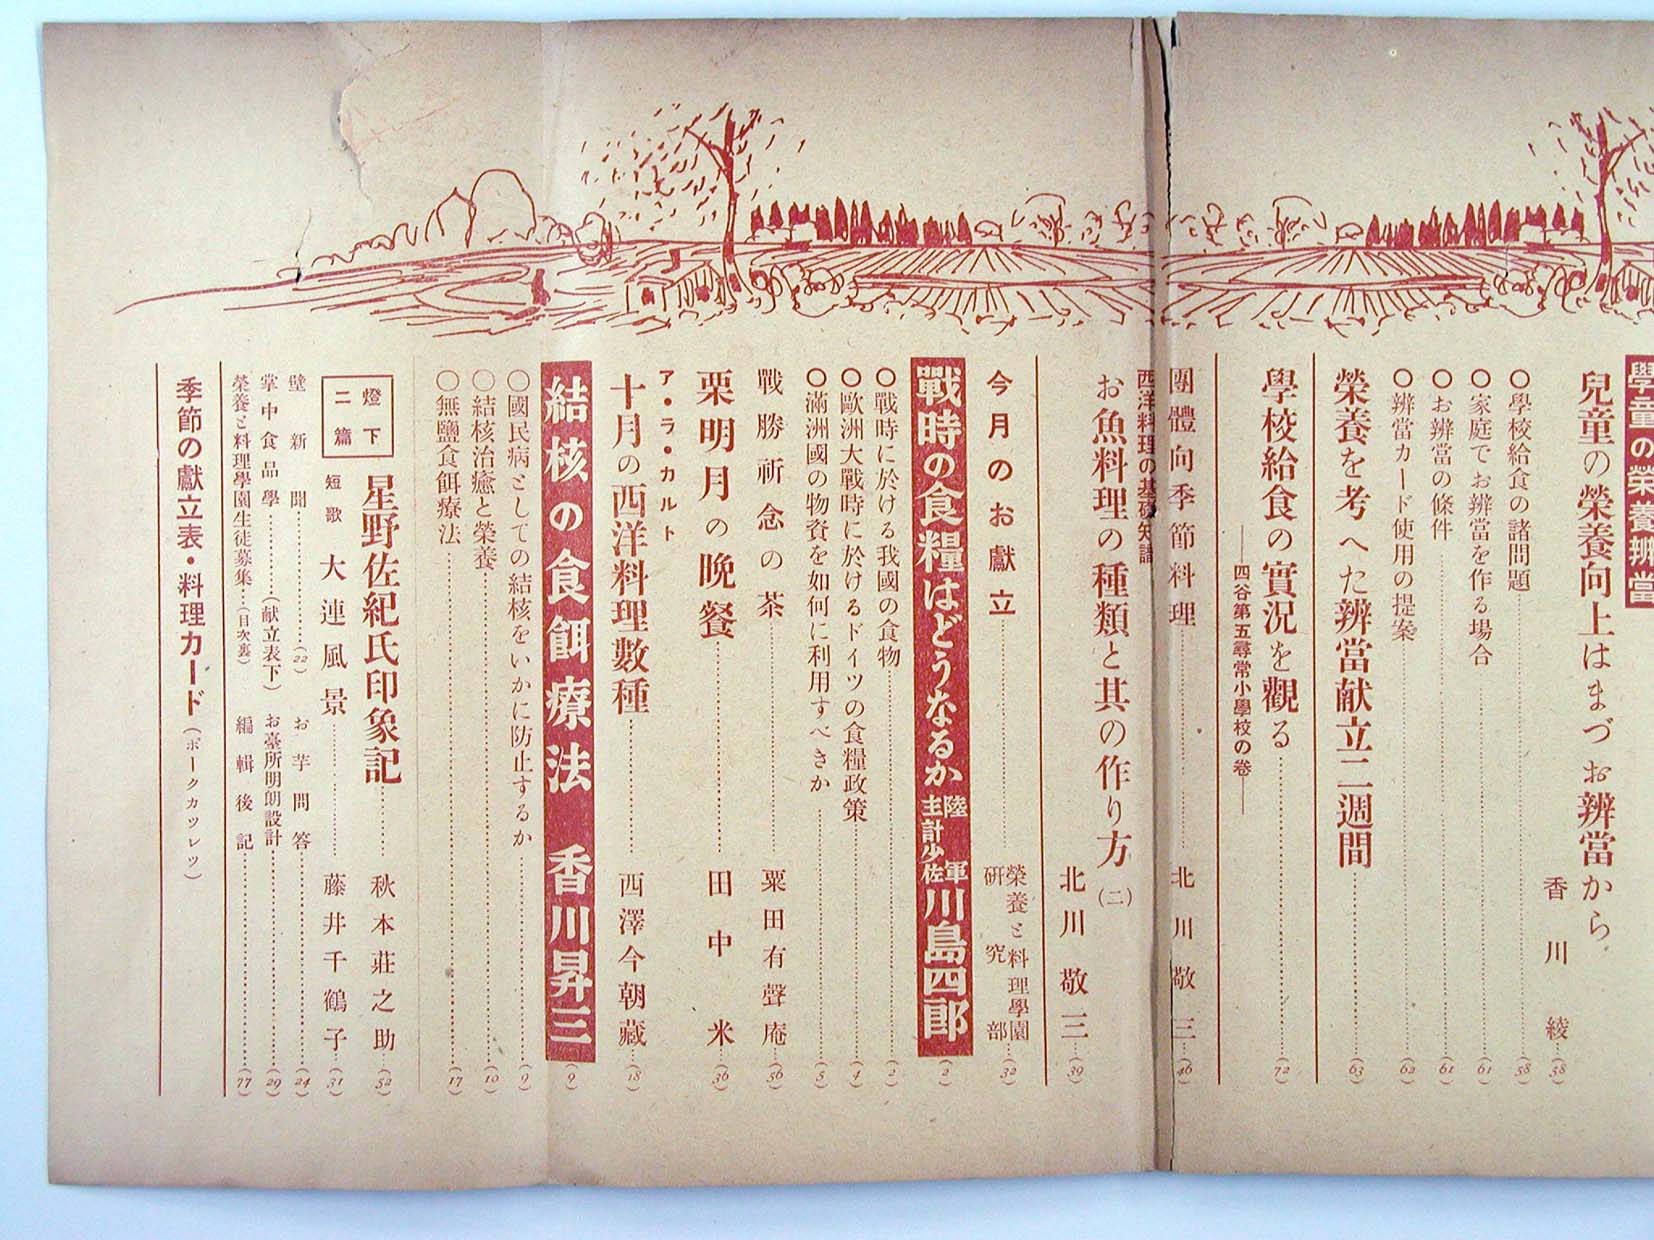 學童の榮養辨當
兒童の榮養向上はまづお辨當から
香川綾…(58)
○學校給食の諸問題…(58)
○家庭でお辨當を作る場合…(61)
○お辨當の條件…(61)
○辨當カード使用の提案…(62)
榮養を考へた辨當献立二週間…(63)
學校給食の實況を觀る…(72)
―四谷第五尋常小學校の卷―
團體向季節料理…北川敬三…(46)
西洋料理の基礎知識
お魚料理の種類と其の作り方(二)
北川敬三…(39)
今月のお獻立…榮養と料理學園研究部…(32)
戰時の食糧はどうなるか 陸軍主計少佐 川島四郎…(2)
○戰時に於ける我國の食物…(2)
○歐洲大戰時に於けるドイツの食糧政策…(4)
○滿洲國の物資を如何に利用すべきか…(5)
戰勝祈念の茶…粟田有聲庵…(56)
栗明月の晩餐…田中米…(36)
ア・ラ・カルト
十月の西洋料理數種…西澤今朝藏…(18)
結核の食餌療法 香川昇三…(9)
○國民病としての結核をいかに防止するか…(9)
○結核治癒と榮養…(10)
○無鹽食餌療法…(17)
燈下二篇
星野佐紀氏印象記…秋本莊之助…(52)
短歌 大連風景…藤井千鶴子…(31)
壁新聞…(22) お芋問答…(24)
掌中食品學…(献立表下) お臺所明朗設計…(29)
榮養と料理學園生徒募集…(目次裏) 編輯後記…(77)
季節の獻立表・料理カード(ポークカツレツ)